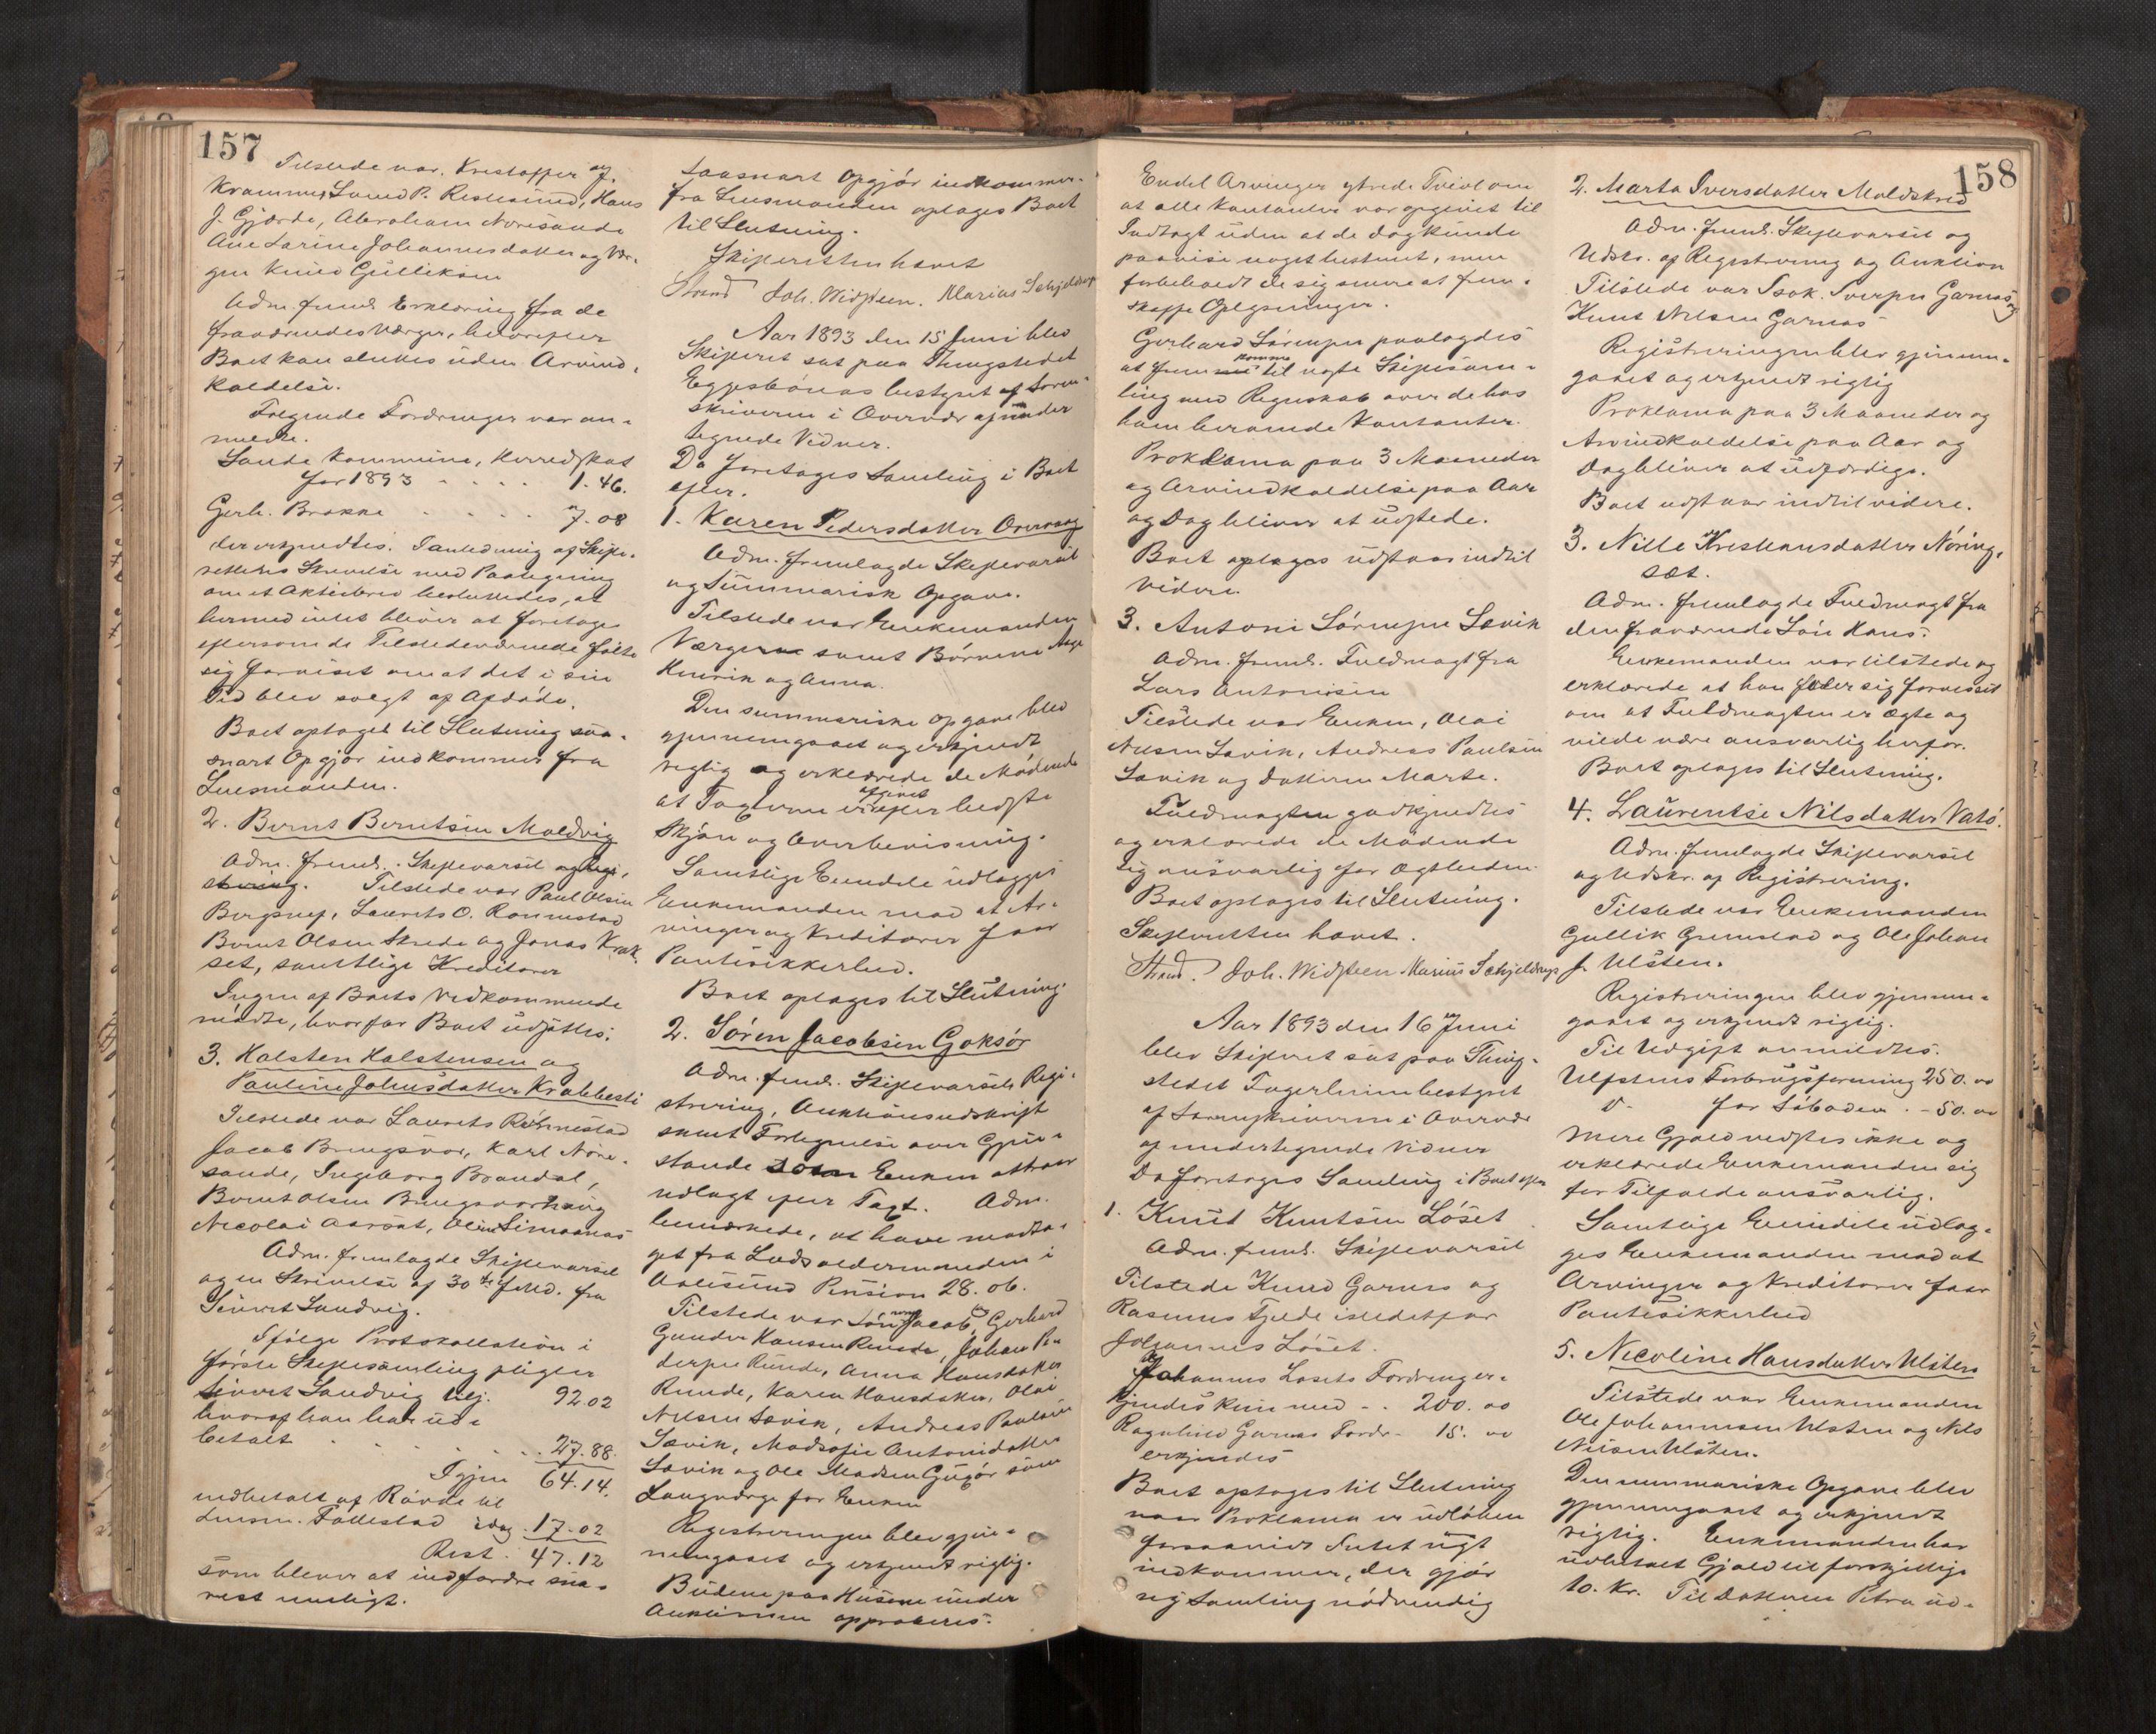 157
Tilstede var Kristoffer J.
Kramme, Lund P. Ristesund, Hans
J. Gjærde, Abraham Noresunde
Ane Larine Johannesdatter og Vær-
gen Knud Gulliksen
Adm. freml. Erklæring fra de
fraværendes Værger, hvorefter
Boet kan sluttes uden Arvind-
kaldelse.
Følgende Fordringer var an-
meldte.
Sande Kommune, Herredskat
for 1893 . . . . 1.46.
Gerh. Brakke . . . . 7.08
der erkjendtes. I anledning af Skifte-
rettens Skrivelse med Paategning
om et Aktiebrev besluttedes, at
hermed intet bliver at foretage
eftersom de Tilstedeværende følte
sig forvisset om at det i sin
Tid blev solgt af Afdøde.
Boet optaget til Slutning saa-
snart Opgjør indkommer fra
Lensmanden.
2. Bernt Berntsen Moldvig
Adm. freml. Skiftevarsel og Regi-
strering. Tilstede var Paul Olsen
Bergsnef, Laurits O. Rønnestad
Bernt Olsen Skrede og Jonas Krak-
set, samtlige Kreditorer
Ingen af Boets Vedkommende
mødte, hvorfor Boet udsattes.
3. Halsten Halstensen og
Pauline Johnsdatter Krabbesti
Tilstede var Laurits Rønnestad
Jacob Bringsvor, Karl Nore-
sande, Ingeborg Brandal,
Bernt Olsen Bringsvorhaug
Nicolai Aarset, Oline Limaanes
Adm. fremlagde Skiftevarsel
og en Skrivelse af 30te f. Md. fra
Sivert Sandvig.
Ifølge Protokollation i
første Skiftesamling pligter
Sivert Sandvig Vej. 92.02
hvoraf han har ud-
betalt . . . . . . 27.88.
Igjen 64.14.
indbetalt af Røvde til
Lensm. Fallestad idag . 17.02
Rest . 47.12
som bliver at indfordre sna-
rest muligt.
saasnart Opgjør indkommer
fra Lensmanden optages Boet
til Slutning.
Skifteretten hævet
Strand Joh. Widsteen. Marius Schjeldrup
Aar 1893 den 15 Juni blev
Skifteret sat paa Thingstedet
Eggesbønes bestyret af Soren-
skriveren i Overvær af under
tegnede Vidner.
Da foretages Samling i Boet
efter.
1. Karen Pedersdatter Overvaag
Adm. fremlagde Skiftevarsel
og Summarisk Opgave.
Tilstede var Enkemanden
Værgerne samt Børnene Aage
Henrik og Anna.
Den summariske Opgave blev
gjennemgaaet og erkjendt
rigtig og erklærede de Mødende
at Taxterne er afgivet efter bedste
Skjøn og Overbevisning.
Samtlige Eiendele udlagges
Enkemanden mod at Ar-
vinger og Kreditorer faar
Pantesikkerhed.
Boet optages til Slutning
2. Søren Jacobsen Goksør
Adm. freml. Skiftevarsel, Regi-
strering, Auktionsudskrift
samt Fortegnelse over Gjen-
stande som Enken attraar
udlagt efter Taxt. Adm.
bemærkede, at have modta-
get fra Lodsoldermanden i
Aalesund Pension 28.06.
Tilstede var Sønnerne Jacob, og Gerhard
Gunder Hansen Runde, Johan Pe-
dersen Runde, Anna Hansdatter
Runde, Karen Hansdatter, Olai
Nilsen Sævik, Andreas Paulsen
Sævik, Madsofie Antonidatter
Sævik og Ole Madsen Gugør som
Laugværge for Enken
Registreringen blev gjen-
nemgaaet og erkjendt rigtig.
Budene paa Husene under
Auktionen approberes.
158
Endel Arvinger ytrede Tvivl om
at alle Kontanter var opgivet til
Indtægt uden at de dog kunde
paavise noget bestemt, men
forbeholdt de sig senere at frem-
skaffe Oplysninger.
Gerhard Sørensen paalagdes
at fremkomme til næste Skiftesam-
ling med Regnskab over de hos
ham beroende Kontanter.
Proklama paa 3 Maaneder
og Arvindkaldelse paa Aar
og Dag bliver at udstede.
Boet optages udstaar indtil
videre.
3. Antoni Sørensen Sævik
Adm. freml. Fuldmagt fra
Lars Antonisen
Tilstede var Enken, Olai
Nilsen Sævik, Andreas Paulsen
Sævik og Datteren Marte.
Fuldmagten godkjendtes
og erklærede de Mødende
sig ansvarlig for Ægtheden.
Boet optages til Slutning.
Skifteretten hævet.
Strand. Joh. Widsteen Marius Schjeldrup
Aar 1893 den 16 Juni
blev Skifteret sat paa Thing-
stedet Fagerheim bestyret
af Sorenskriveren i Overvær
af undertegnede Vidner
Da foretages Samling i Boet efter
1. Knut Knutsen Løset
Adm. freml. Skiftevarsel
Tilstede Knud Garnes og
Rasmus Fjelde istedetfor
Johannes Løset.
Johannes Løsets Fordring er-
kjendes kun med . . 200.00
Ragnhild Garnes Fordr. 15.00
erkjendes
Boet optages til Slutning
naar Proklama er udløben
forsaavidt Intet nyt
indkommer, der gjør
ny Samling nødvendig
2. Marta Iversdatter Moldskred
Adm. freml. Skiftevarsel og
Udskr. af Registrering og Auktion
Tilstede var Isak Iversen Garnes og
Knut Nilsen Garnes
Registreringen blev gjennem-
gaaet og erkjendt rigtig
Proklama paa 3 Maaneder og
Arvindkaldelse paa Aar og
Dag bliver at udfærdige.
Boet udstaar indtil videre.
3. Nille Kristiansdatter Nøring-
sæt.
Adm. fremlagde Fuldmagt fra
den fraværende Søn Hans.
Enkemanden var tilstede og
erklærede at han føler sig forvisset
om at Fuldmagten er ægte og
vilde være ansvarlig herfor.
Boet optages til Slutning.
4. Laurentse Nilsdatter Vatø.
Adm. fremlagde Skiftevarsel
og Udskr. af Registrering.
Tilstede var Enkemanden
Gullik Grimstad og Ole Johan
J. Ulsten.
Registreringen blev gjennem-
gaaet og erkjendt rigtig.
Til Udgift anmeldtes.
Ulstens Forbrugsforening 250.00
D- for Søboden . - 50.00
Mere Gjæld vidstes ikke og
erklærede Enkemanden sig
for Tilfælde ansvarlig.
Samtlige Eiendele udlæg-
ges Enkemanden mod at
Arvinger og Kreditorer faar
Pantesikkerhed
5. Nicoline Hansdatter Ulsten
Tilstede var Enkemanden
Ole Johannesen Ulsten og Nils
Nilsen Ulsten.
Den summariske Opgave blev
gjennemgaaet og erkjendt
rigtig. Enkemanden har
udbetalt Gjæld til forskjellige
10. Kr. Til Datteren Petra ud-